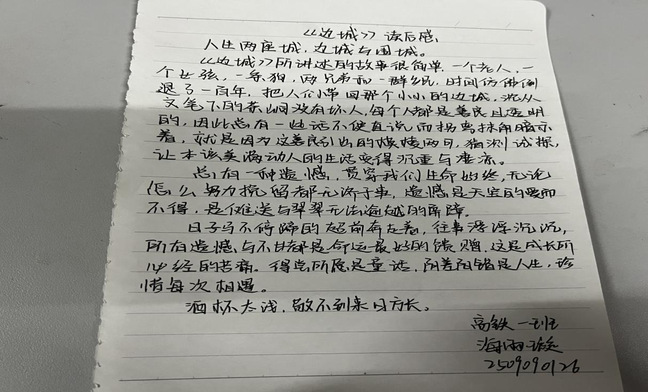 《边城》读后感
人生两座城，边城与围城。
《边城》所讲述的故事很简单，一个老人，一
个女孩，一条狗，两兄弟和一群乡民，时间仿佛倒
退了一百年，把人们带回那个小小的边城，沈从
文笔下的茶峒没有坏人，每个人都是善良且透明
的，因此总有一些话不便直说，而拐弯抹角暗示
着，就是因为这善良引出的模棱两可，猜测试探，
让本该美满动人的生活变得沉重与凄凉。
总有一种遗憾，贯穿我们生命始终，无论
怎么努力挽留都无济于事，遗憾是天宝的爱而
不得，是傩送与翠翠无法逾越的屏障。
日子马不停蹄的超前奔赴着，往事浮浮沉沉，
所有遗憾与不甘都是命运最好的馈赠，这是成长所
必经的苦痛。得偿所愿是童话，阴差阳错是人生，珍
惜每次相遇。
酒杯太浅，敬不到来日方长。
高铁一班
海雨璇
2509090126